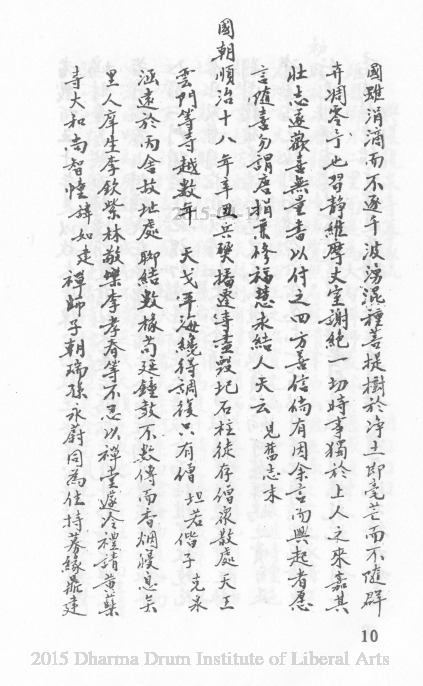 國雖涓滴而不逐千波湧混種菩提樹於淨土即毫芒而不隨群
卉凋零予也習靜維摩丈室謝絕一切時事獨於上人之來嘉其
壯志遂歡喜無量書以付之四方善信倘有因余言而興起者愿
言隨喜勿謂唐捐業修福慧永結人天云 見舊志末
國朝順治十八年辛丑兵燹播遷寺盡毀圮石柱徒存僧眾散處天王
雲門等寺越數年 天戈平海纔得調復只有僧 坦若偕子 克泉
涵遠於丙舍故址處聊結數椽苟延鐘鼓不數傳而香烟寢息矣
里人庠生李欽 紫林敬 樂李孝春等不忍以禪堂邃冷禮請黃蘗
寺大和尚智 諱如走 禪師子朝瑞孫永蔚同為住持募緣鼎建
10
2015 Dharma Drum Institute of Liberal Arts